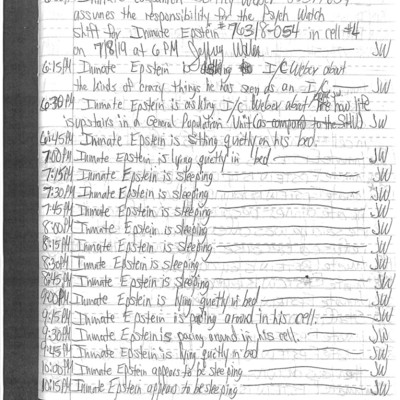 assumes the responsibility for the Psych Watch
shift for Inmate Epstein #76318-054 in cell #4
on 7/18/19 at 6 PM JW
6:15PM Inmate Epstein is asking I/C Weber about
the kinds of crazy things he has seen as an I/C JW
6:30PM Inmate Epstein is asking I/C Weber about how life
is upstairs in a General Population Unit (as compared to the SHU) JW
6:45PM Inmate Epstein is sitting quietly on his bed. JW
7:00PM Inmate Epstein is lying quietly in bed JW
7:15PM Inmate Epstein is sleeping JW
7:30PM Inmate Epstein is sleeping JW
7:45PM Inmate Epstein is sleeping JW
8:00PM Inmate Epstein is sleeping JW
8:15PM Inmate Epstein is sleeping JW
8:30PM Inmate Epstein is sleeping JW
8:45PM Inmate Epstein is sleeping JW
9:00PM Inmate Epstein is lying quietly in bed JW
9:15PM Inmate Epstein is pacing around in his cell. JW
9:30PM Inmate Epstein is pacing around in his cell. JW
9:45PM Inmate Epstein is lying quietly in bed JW
10:00PM Inmate Epstein appears to be sleeping JW
10:15PM Inmate Epstein appears to be sleeping JW